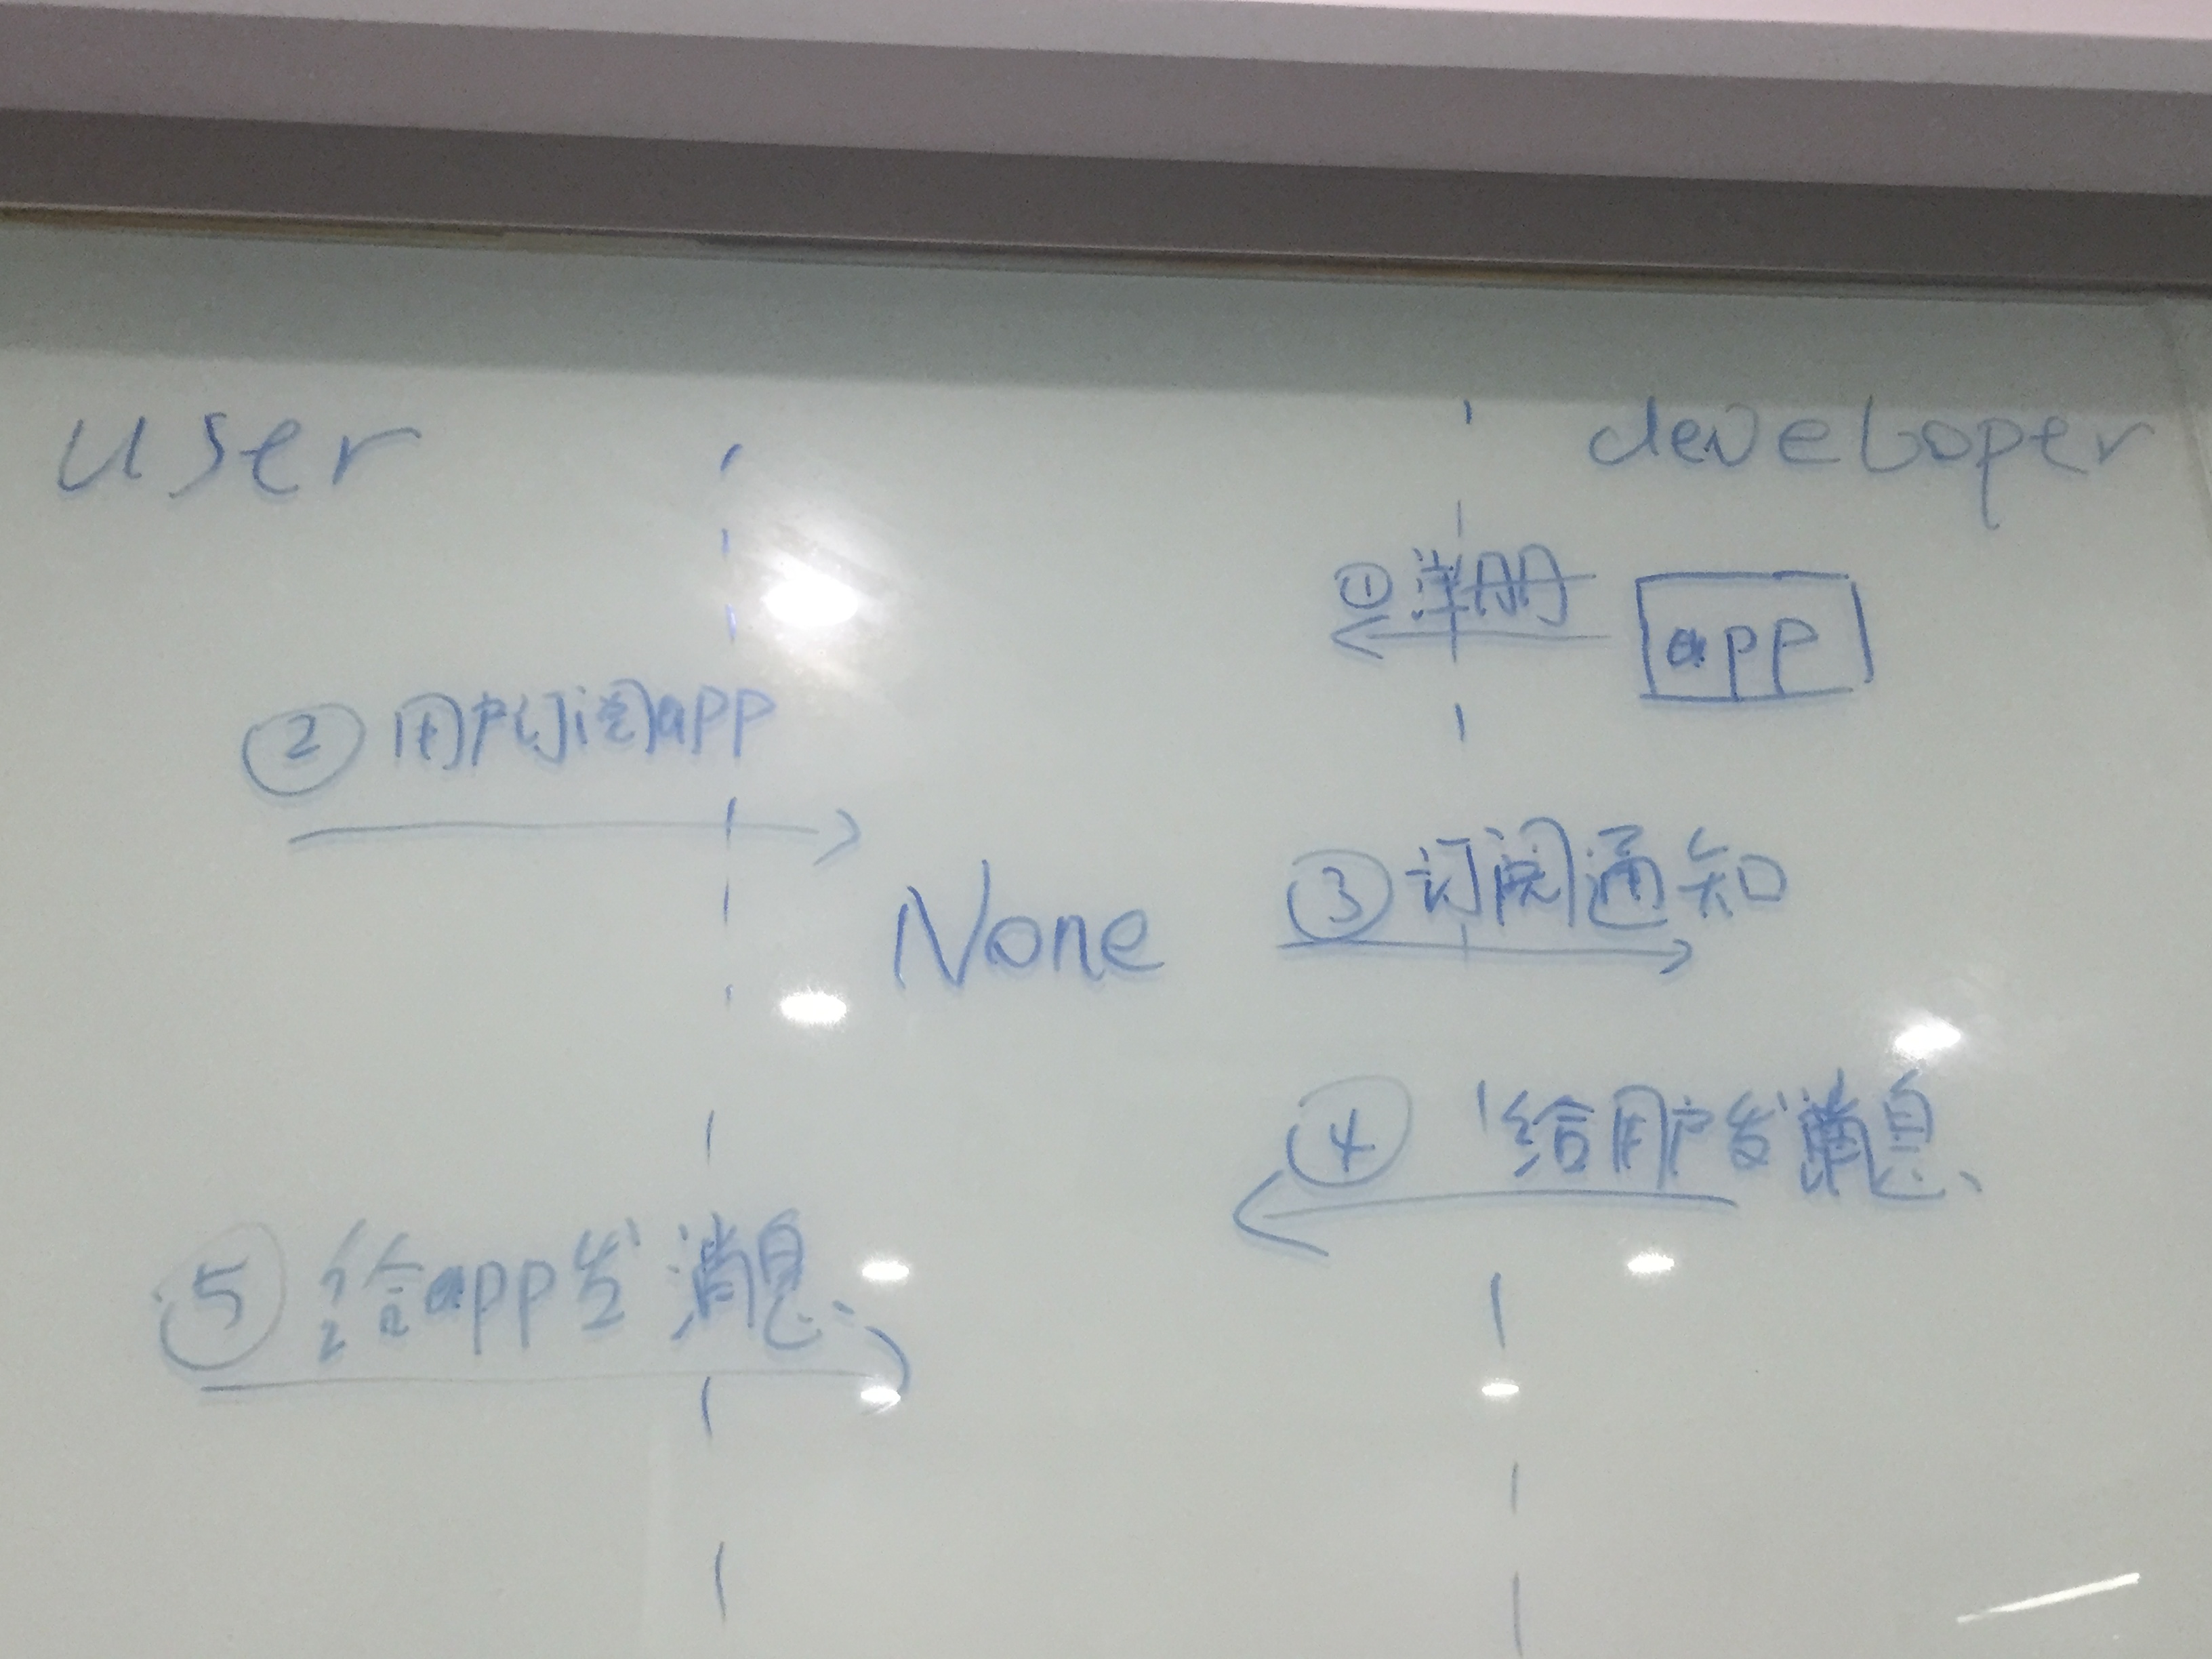 user
developer
① 注册
app
② 用户订阅app
③ 订阅通知
None
④ 给用户发消息
⑤ 给app发消息